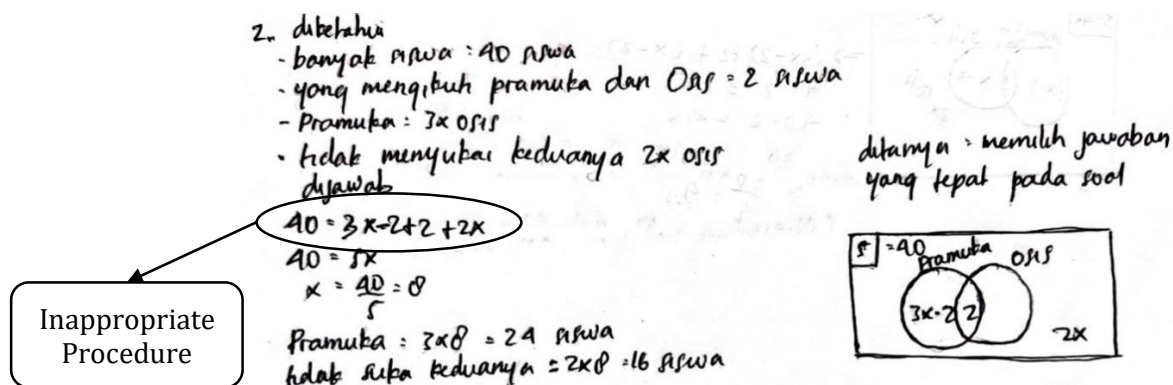 2. diketahui
- banyak siswa : 40 siswa
- yang mengikuti pramuka dan Osis = 2 siswa
- Pramuka : 3x osis
- tidak menyukai keduanya 2x osis
dijawab
40 = 3x-2+2+2x
40 = 5x
x = 40/5 = 8
Pramuka : 3x8 = 24 siswa
tidak suka keduanya = 2x8 = 16 siswa
ditanya : memilih jawaban
yang tepat pada soal
S = 40
Pramuka
OSIS
3x-2
2
2x
Inappropriate
Procedure